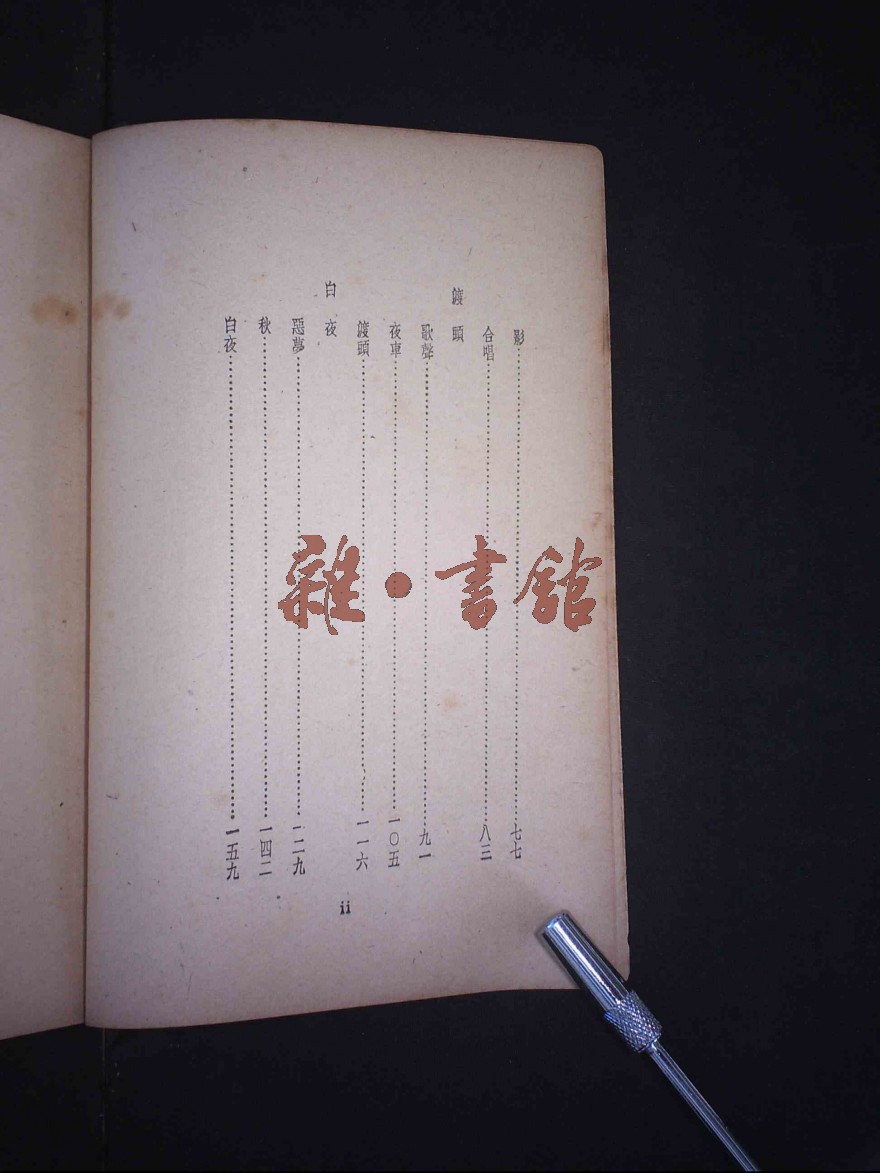 影……七七
合唱……八三
渡頭
歌聲……九一
夜車……一〇五
渡頭……一一六
白夜
惡夢……一二九
秋……一四二
白夜……一五九
ii
雜·書館